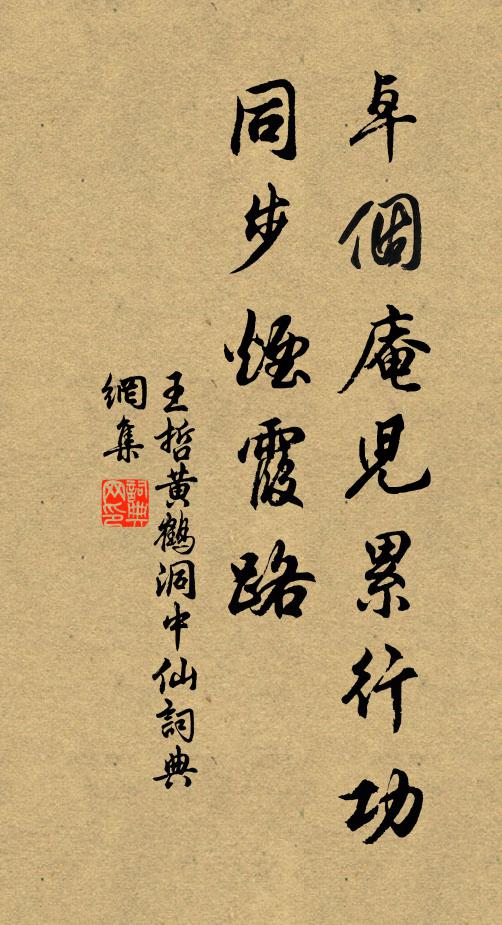 卓個庵兒累行功
同步煙霞路
王哲黃鶴洞中仙詞典
網集
詞典
网印